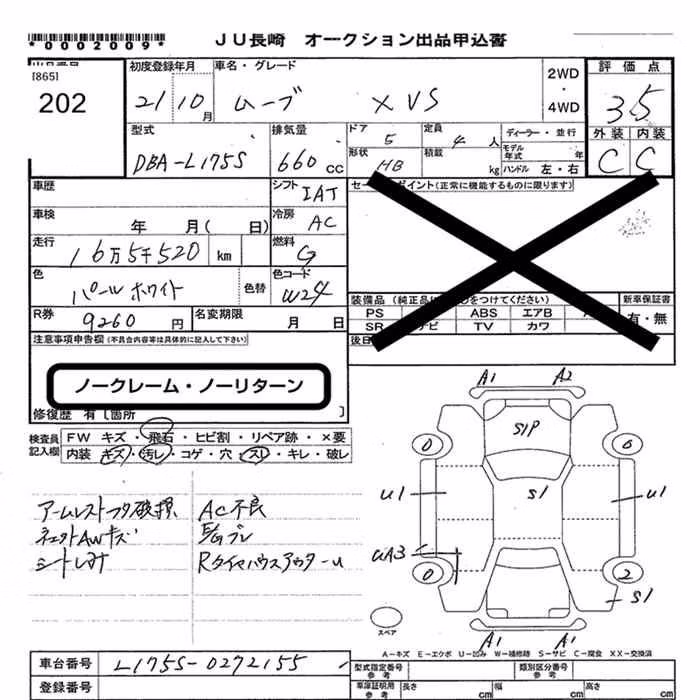 *0002009*
JU長崎 オークション出品申込書
[865]
202
初度登録年月
21 10 月
車名・グレード
ムーブ XVS
2WD
・
4WD
評価点
3.5
外装 内装
C C
型式
DBA-L175S
排気量
660 cc
ドア
5
定員
4 人
形状
HB
積載
kg
ディーラー・並行
モデル年式 年
ハンドル 左・右
車歴
シフト IAT
車検 年 月( 日)
冷房 AC
走行 16万5千520 km
燃料 G
色 パールホワイト 色替
色コード W24
R券 9260 円
名変期限 月 日
ポイント(正常に機能するものに限ります)
装備品(純正品に
をつけてください)
新車保証書
PS ABS エアB
有・無
SR ナビ TV カワ
注意事項申告欄(不具合内容等は具体的に記入して下さい)
ノークレーム・ノーリターン
修復歴 有[箇所 ]
検査員
記入欄
FW キズ・飛石・ヒビ割・リペア跡・×要
内装 キズ・汚レ・コゲ・穴・スレ・キレ・破レ
アームレストフタ破損 AC不良
ネェットAWキズ
Rタイヤハウスアウターu
A1 A2
S1P
0 0
S1
u1 u1
uA3
0 2
S1
スペア
A1 A1
A-キズ E-エクボ U-凹み W-補修跡 S-サビ C-腐食 XX-交換済
車台番号 L175S-0272155
型式指定番号
参考
類別区分番号
参考
登録番号
車庫証明用
参考
長さ cm 幅 cm 高さ cm